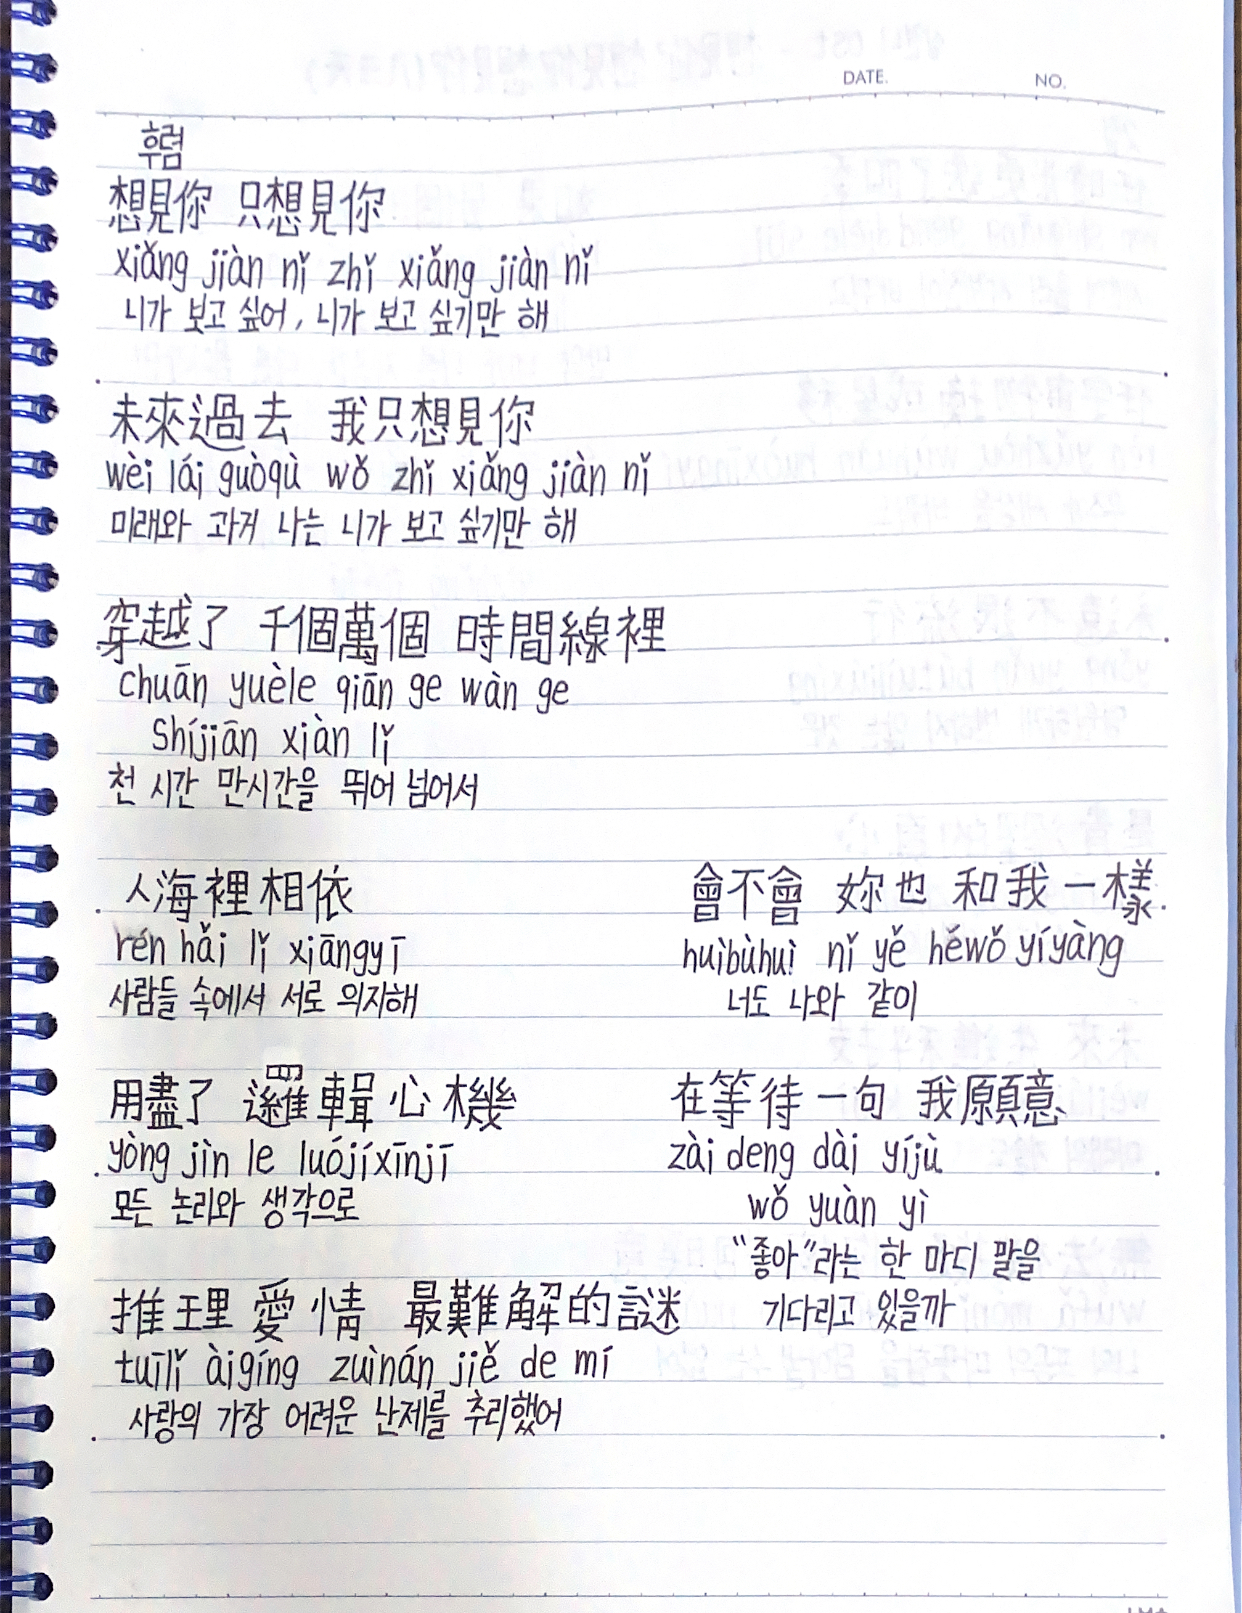 DATE. NO.
후렴
想見你 只想見你
xiǎng jiàn nǐ zhǐ xiǎng jiàn nǐ
니가 보고 싶어, 니가 보고 싶기만 해
未來過去 我只想見你
wèi lái guòqù wǒ zhǐ xiǎng jiàn nǐ
미래와 과거 나는 니가 보고 싶기만 해
穿越了 千個萬個 時間線裡
chuān yuèle qiān ge wàn ge
Shíjiān xiàn lǐ
천 시간 만시간을 뛰어 넘어서
人海裡相依
rén hǎi lǐ xiāngyī
사람들 속에서 서로 의지해
用盡了 邏輯心機
yòng jìn le luójíxīnjī
모든 논리와 생각으로
推理愛情 最難解的謎
tuīlǐ àigíng zuìnán jiě de mí
사랑의 가장 어려운 난제를 추리했어
會不會 妳也 和我一樣
huìbùhuì nǐ yě hěwǒ yíyàng
너도 나와 같이
在等待一句 我願意
zài deng dài yíjù
wǒ yuàn yì
"좋아"라는 한 마디 말을
기다리고 있을까